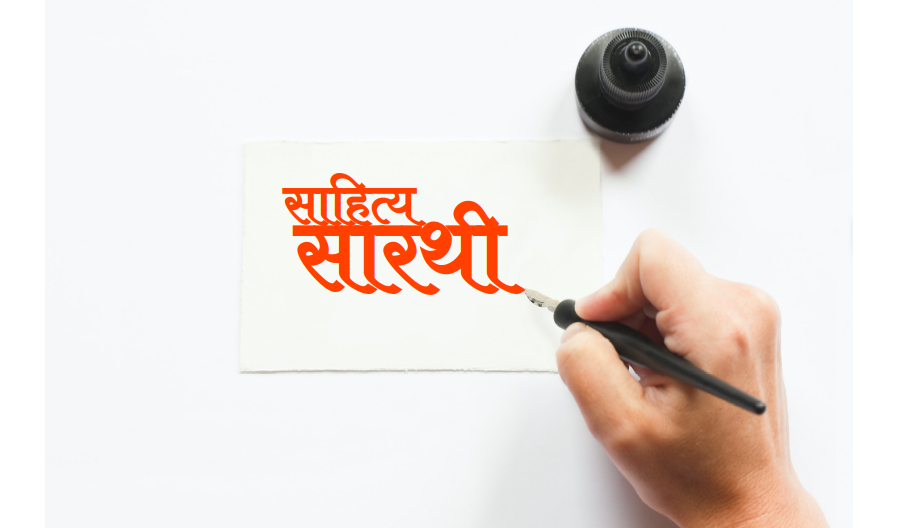 साहित्य
सारथी